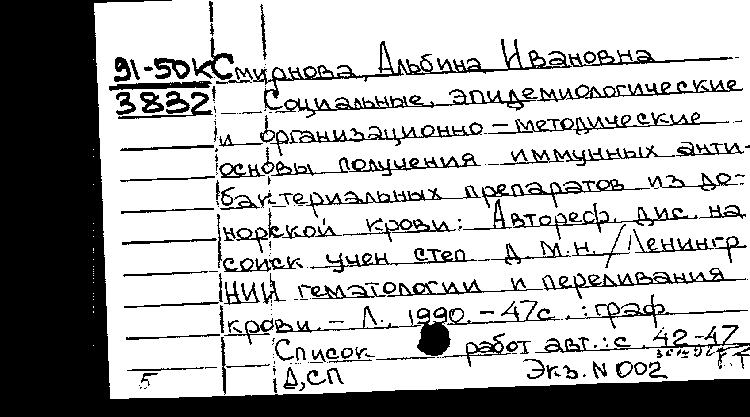 91-50К Смирнова, Альбина Ивановна
3832 Социальные, эпидемиологические
и организационно-методические
основы получения иммунных анти-
бактериальных препаратов из до-
норской крови: Автореф. дис. на
соиск учен. степ д.м.н. /Ленингр
НИИ гематологии и переливания
крови. - Л., 1990. - 47с. : граф.
Список работ авт.: с. 42-47
5 Д,СП Экз. N 002